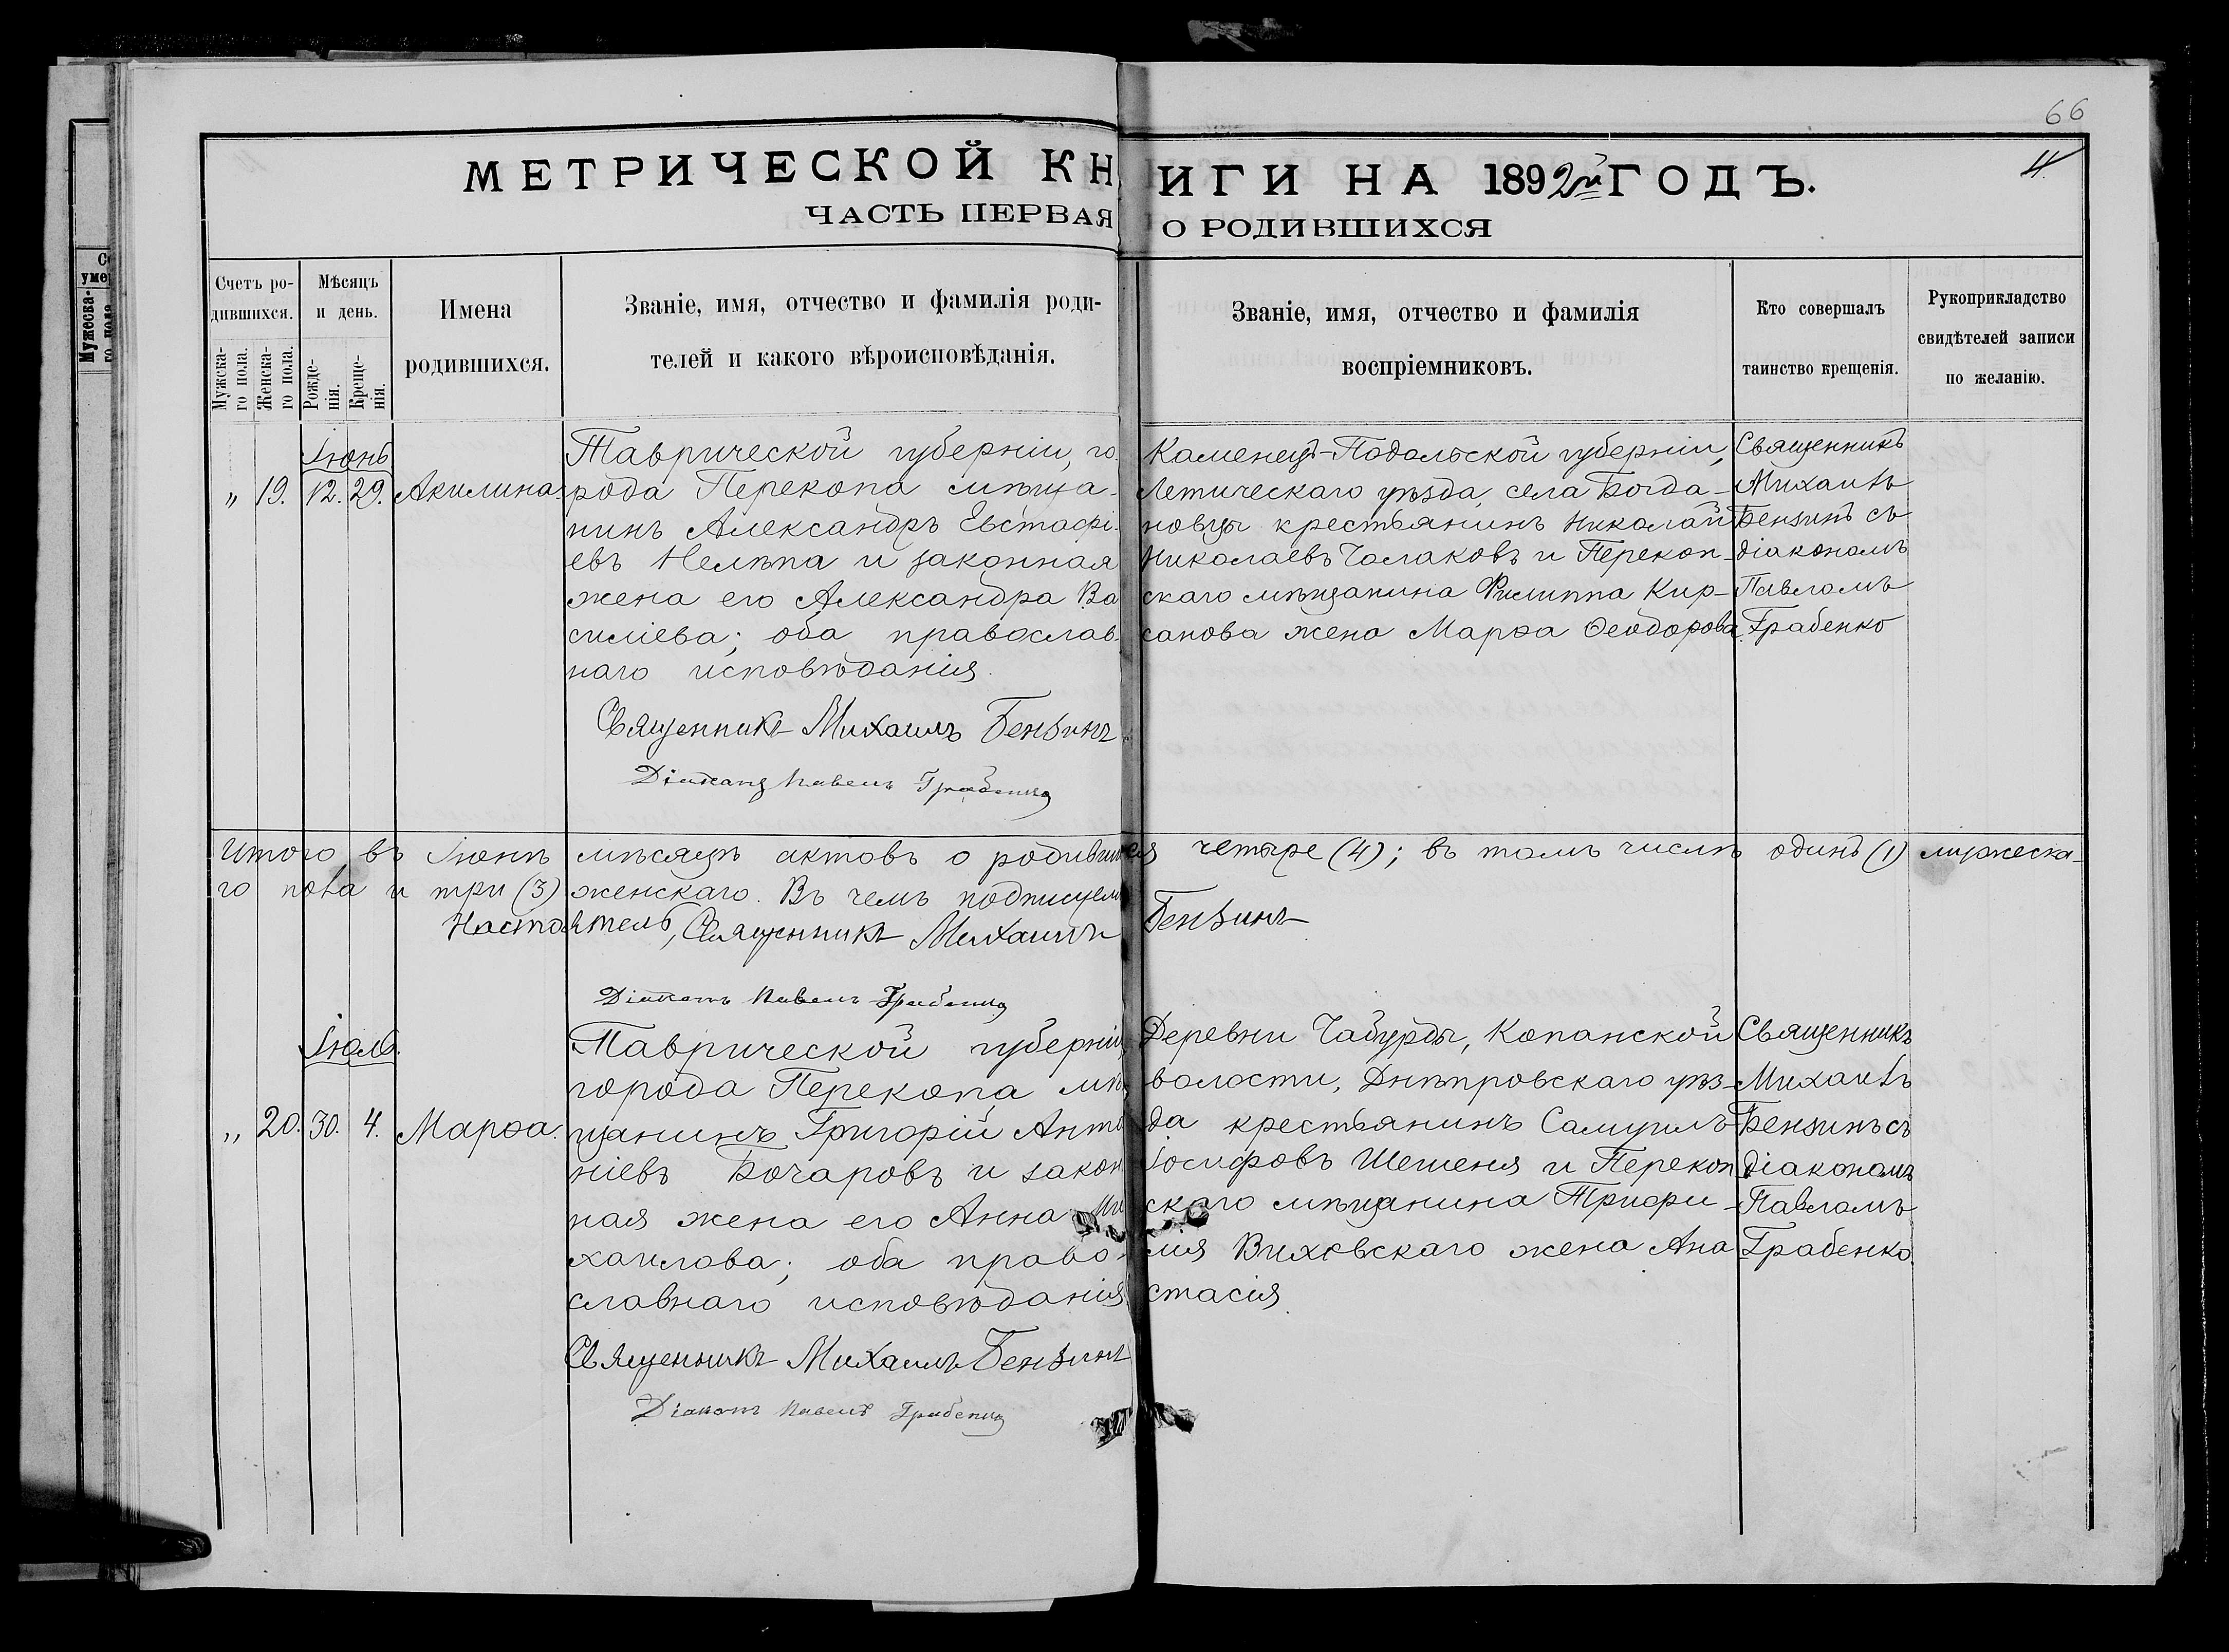 66
4
МЕТРИЧЕСКОЙ КНИГИ НА 1892й ГОДЪ.
ЧАСТЬ ПЕРВАЯ О РОДИВШИХСЯ
Счетъ родившихся.
Мужскаго пола.
Женскаго пола.
Мѣсяцъ и день.
Рожденія.
Крещенія.
Имена
родившихся.
Званіе, имя, отчество и фамилія роди-
телей и какого вѣроисповѣданія.
Званіе, имя, отчество и фамилія
воспріемниковъ.
Кто совершалъ
таинство крещенія.
Рукоприкладство
свидѣтелей записи
по желанію.
Іюнь
„ 19. 12. 29. Акилина.
Таврической губерніи, го-
рода Перекопа мѣща-
нинъ Александръ Евстафі-
евъ Нелѣпа и законная
жена его Александра Ва
силіева; оба православ-
наго исповѣданія.
Священникъ Михаилъ Бензинъ
Діаконъ Павелъ Грабенко
Каменецъ-Подольской губерніи,
Летическаго уѣзда, села Богда-
новцы крестьянинъ Николай
Николаевъ Чолаковъ и Перекоп-
скаго мѣщанина Филиппа Кир-
санова жена Марѳа Ѳеодорова.
Священникъ
Михаилъ
Бензинъ съ
діакономъ
Павломъ
Грабенко
Итого въ Іюнѣ мѣсяцѣ актовъ о родившихся четыре (4); въ томъ числѣ одинъ (1) мужеска-
го пола и три (3) женскаго. Въ чемъ подписуемъ
Настоятель, Священникъ Михаилъ Бензинъ
Діаконъ Павелъ Грабенко
Іюль.
„ 20. 30. 4. Марѳа.
Таврической губерніи,
города Перекопа мѣ
щанинъ Григорій Анто
ніевъ Бочаровъ и закон
ная жена его Анна Ми
хаилова; оба право-
славнаго исповѣданія.
Священникъ Михаилъ Бензинъ
Діаконъ Павелъ Грабенко
Деревни Чабурды, Копанской
волости, Днѣпровскаго уѣз-
да крестьянинъ Самуилъ
Іосифовъ Шешеня и Перекоп
скаго мѣщанина Трифи-
лія Виховскаго жена Ана
стасія.
Священникъ
Михаилъ
Бензинъ съ
діакономъ
Павломъ
Грабенко.